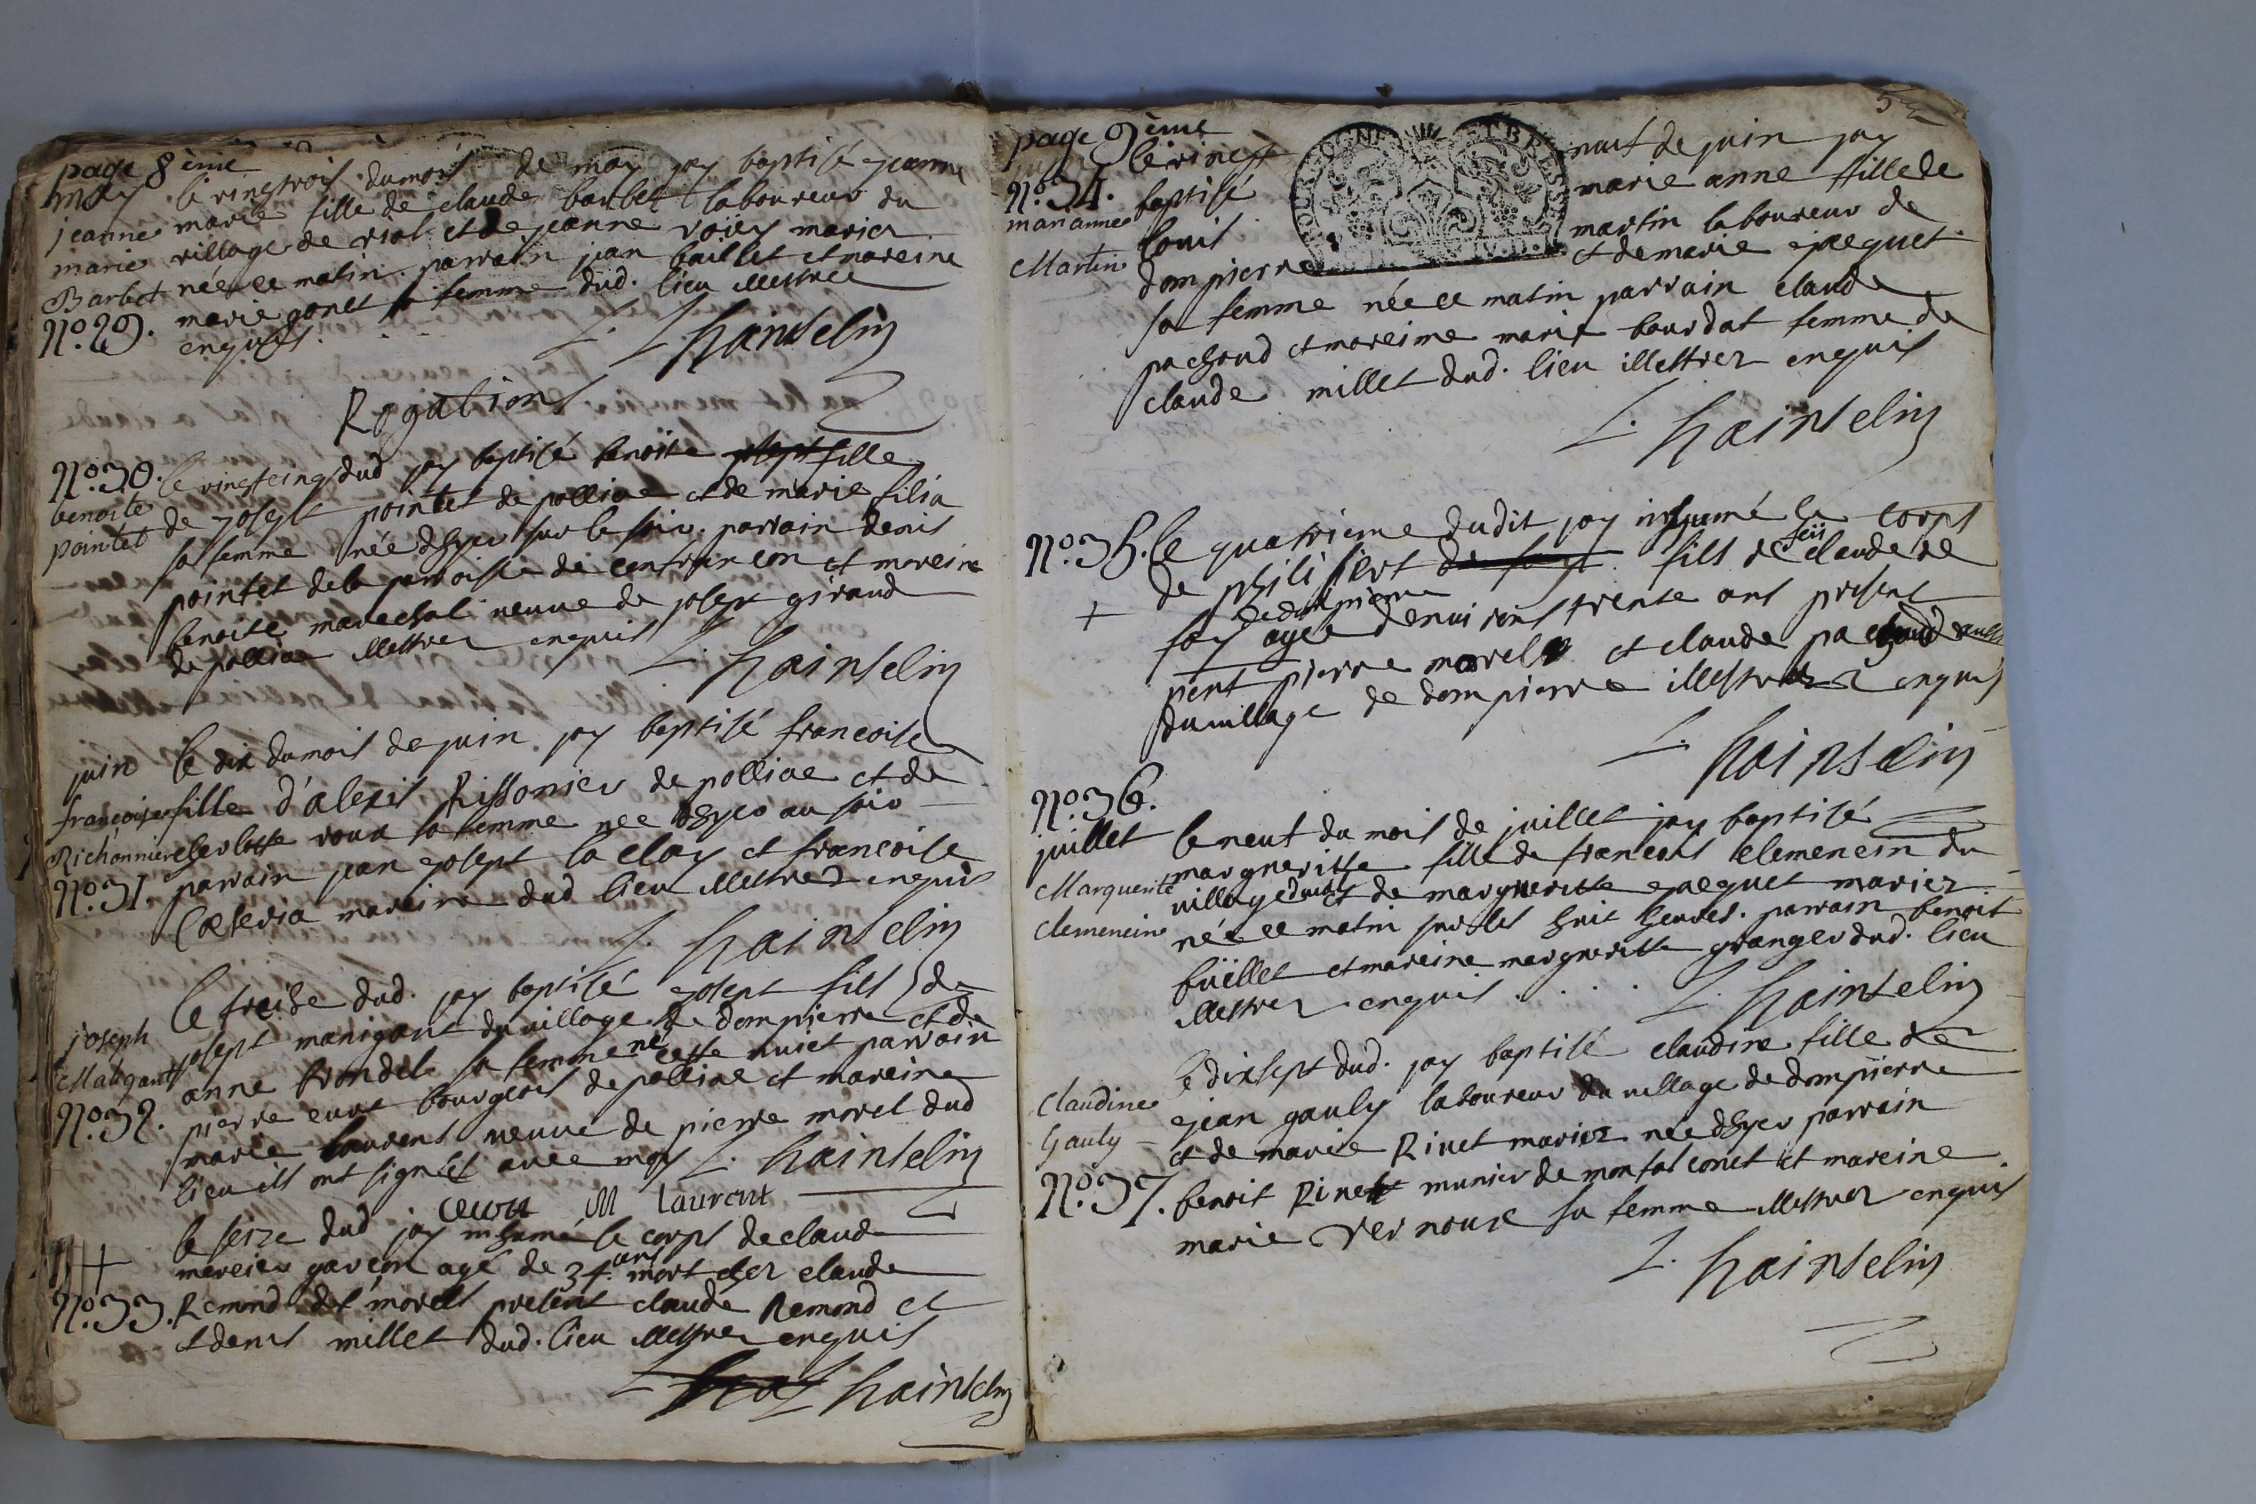 page 8ème
may le vingtrois du mois de may jay baptisé jeanne
jeanne marie fille de claude barbet laboureur du
marie village de et de jeanne mariez
Barbet née ce matin parrain jean buillet et mareine
No. 29. marie gonet sa femme dud. lieu illettrez
enquis.
L. hainselin
Rogations
No. 30. le vingtcinq dud jay baptisé benoite fille
benoite de joseph pointet de polliac et de marie filia
pointet sa femme née dhyer sur le soir. parrain denis
pointet de la parroisse de et mareine
benoite marechal veuve de joseph giraud
de polliac illettrez enquis
L. hainselin
juin le dix du mois de juin jay baptisé francoise
francoise fille d'alexis Rissonier de polliac et de
Richonnier roux sa femme née dhyer au soir
No. 31 parrain jean joseph la clay et francoise
mareine dud lieu illettrez enquis
L. hainselin
le treise dud. jay baptisé joseph fils de
joseph joseph manigant du village de dompierre et de
Manigant anne brondel sa femme né cette nuict parrain
No. 32. pierre bourgeois de polliac et mareine
marie laurent veuve de pierre morel dud
lieu ils ont signés avec moy L. hainselin
M laurent
le seize dud jay inhumé le corps de claude
mercier garcon agé de 34. ans mort chez claude
No. 33. Remond des morels présent claude Remond et
et denis millet dud. lieu illettrez enquis
L. hainselin
page 9ème
le vinct neuf de juin jay
No. 34. baptisé marie anne fille de
marianne louis martin laboureur de
Martin dompierre et de marie jacquet
sa femme née ce matin parrain claude
pachoud et mareine marie bourdat femme de
claude millet dud. lieu illettrez enquis
L. hainselin
No. 35. le quatrieme dudit jay inhumé le corps
de philibert fils de feü claude de
fay de dompierre agé denvirons trente ans présent
pierre morel et claude pachoud
du village de dompierre illettrez enquis
L. hainselin
No. 36.
juillet le neuf du mois de juillet jay baptisé
Marguerite margueritte fille de francois clemencin du
clemencine village dud et de margueritte jacquet mariez
née ce matin sur les huit heures. parrain benoit
buëllet et mareine margueritte granger dud. lieu
illettrez enquis . . . .
L. hainselin
le dixsept dud. jay baptisé claudine fille de
Claudine jean gauly laboureur du village de dompierre
Gauly et de marie Rivet mariez née dhyer parrain
No. 37. benoit Rivet munier de montfalconet et mareine
marie vernoux sa femme illettrez enquis
L. hainselin